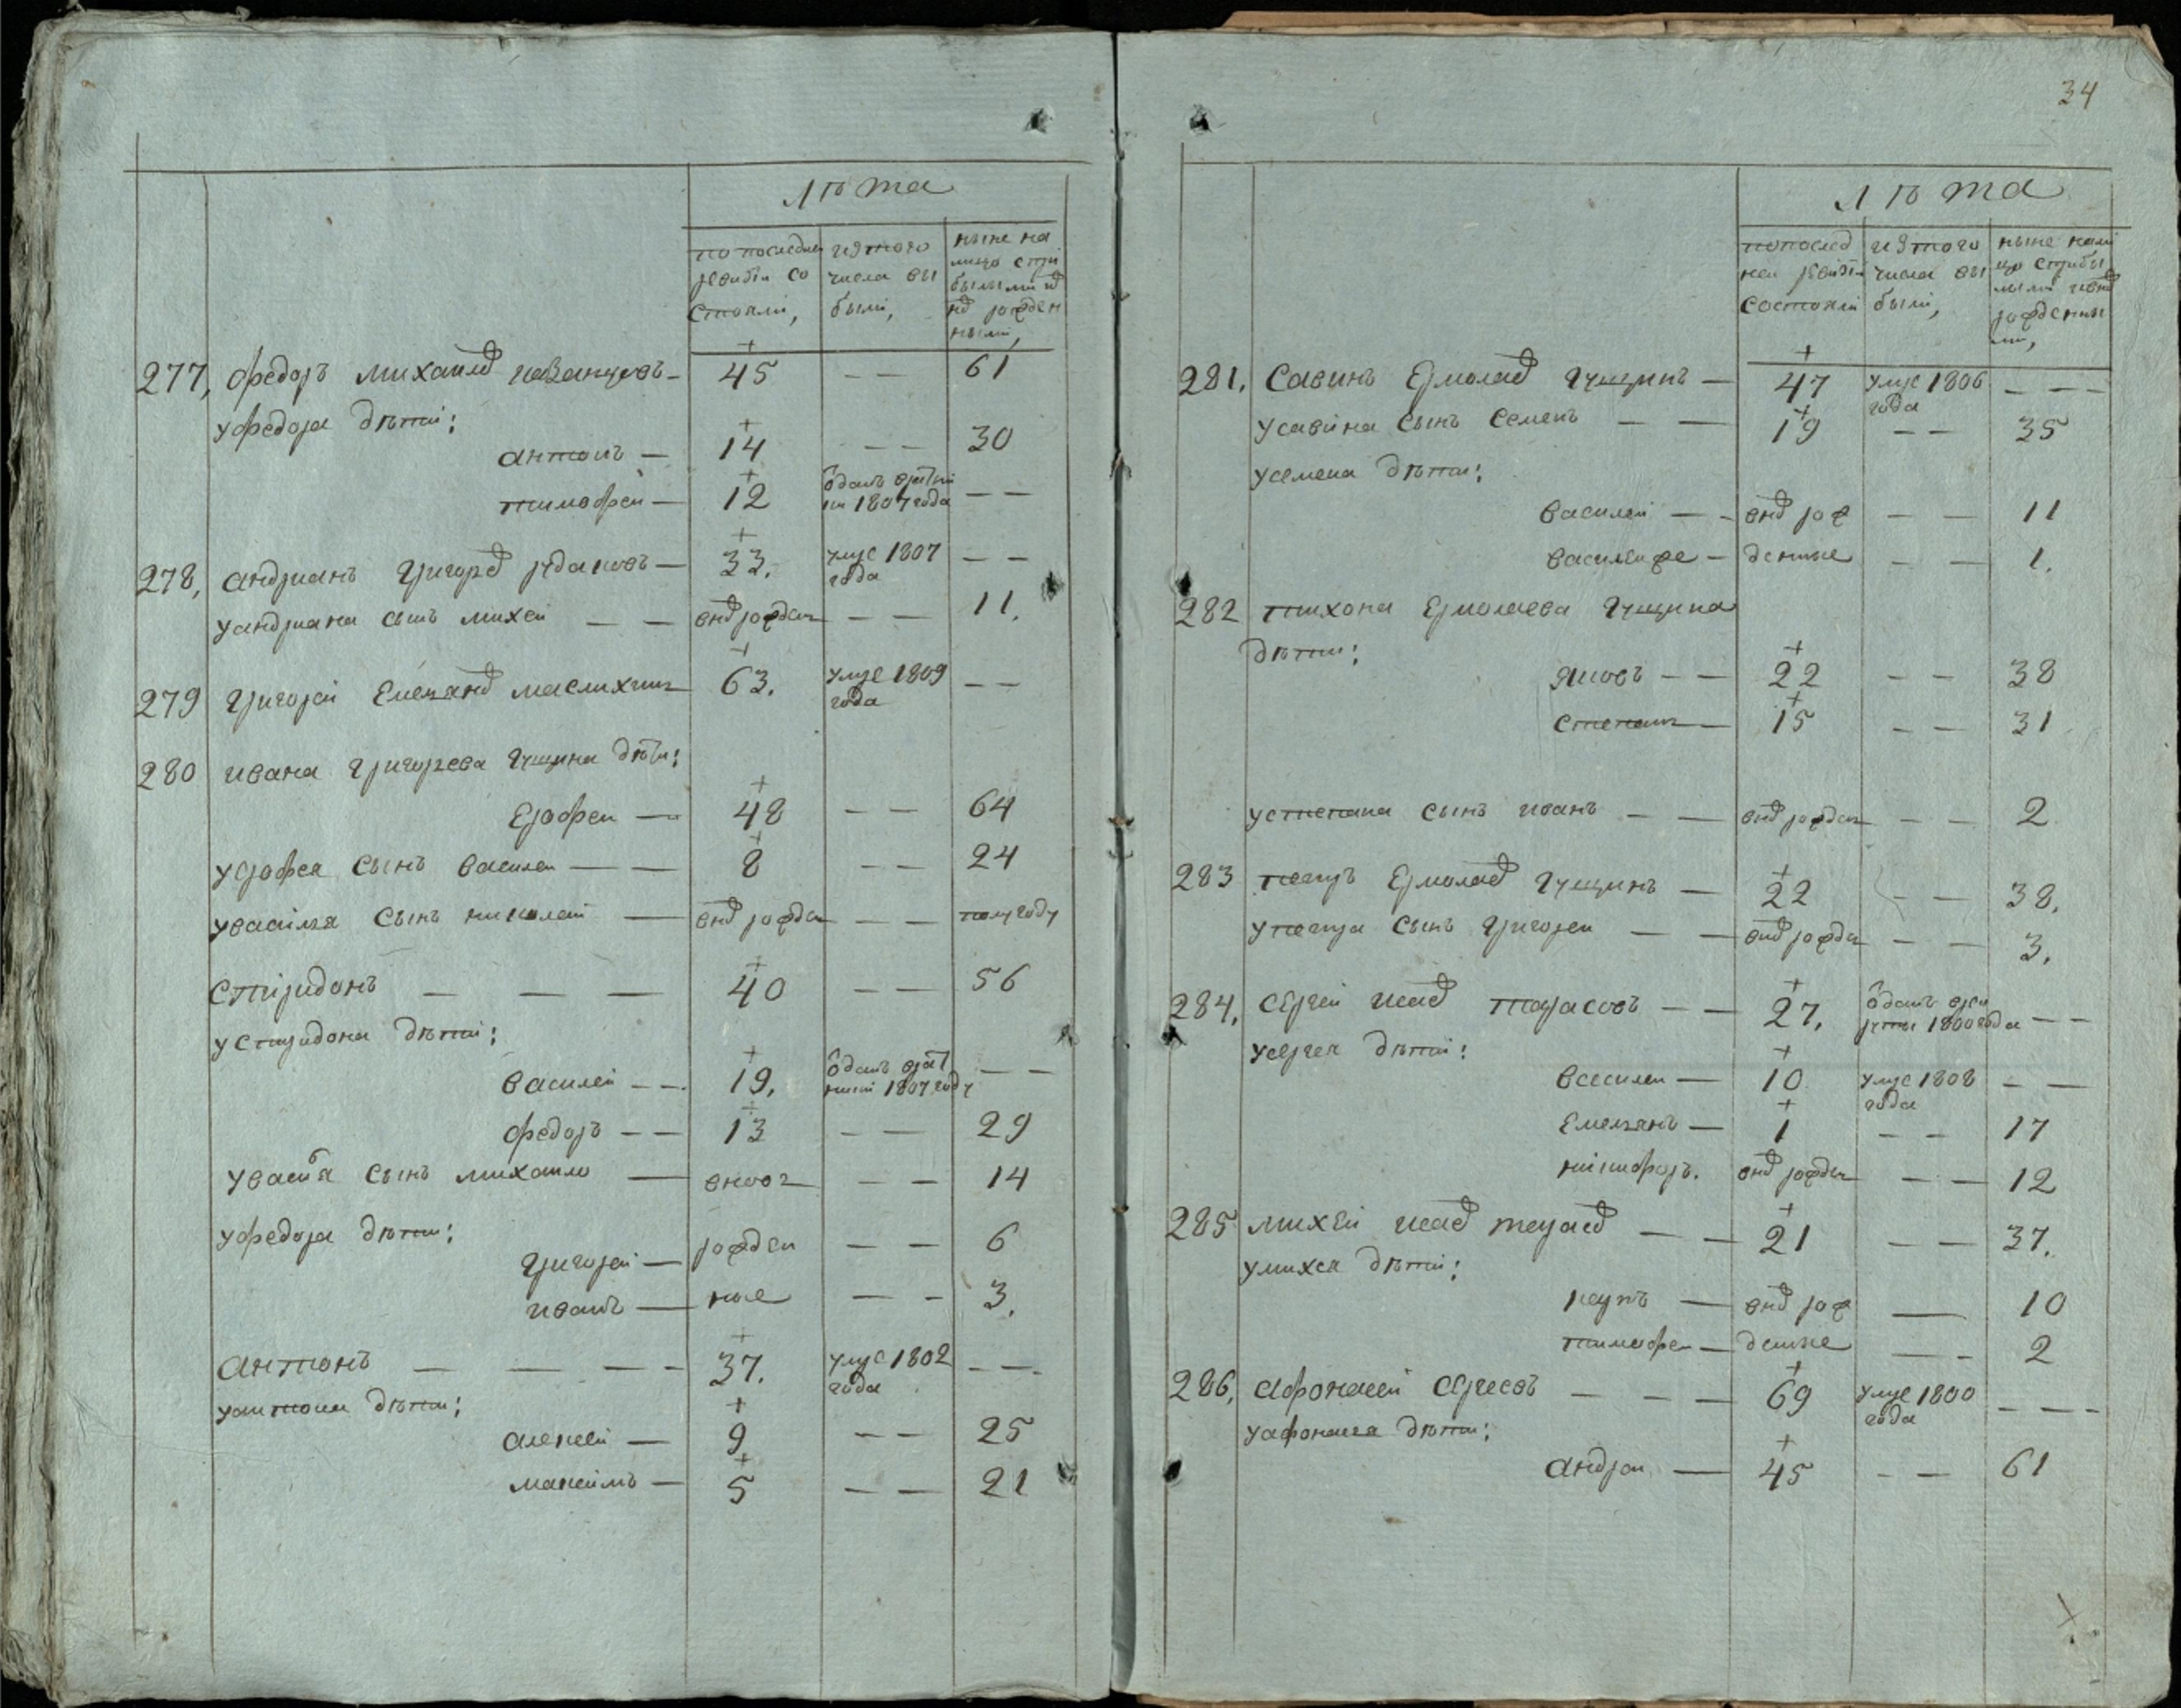 лѣта
по последней ревизiи состояли,
изъ того числа выбыли,
ныне на лицо с прибылыми и вновь рожденными,
277, Федоръ Михаилов 45 — — 61
у Федора дѣти:
Антонъ — 14 — — 30
Тимофей — 12 одан 1807 года — —
278, Андриянъ Григорев Рудаковъ — 33. умре 1807 года — —
у Андрияна сынъ Михей — — внов рожден — — 11.
279 Григорей Емельянов Маслихин 63. умре 1809 года — —
280 Ивана Григорьева Гущина дѣти:
Ерофеи — 48 — — 64
у Ерофея сынъ Василеи — — 8 — — 24
у Василья сынъ Николай — внов рожден — — полугоду
Спиридонъ — — — 40 — — 56
у Спиридона дѣти:
Василей — — 19. одан 1807 году — —
Федоръ — — 13 — — 29
у Васил сынъ Михаило — вновь — — 14
у Федора дѣти:
Григорей — рожден — — 6
Иванъ — ные — — 3.
Антонъ — — — — 37. умре 1802 года — —
у Антона дѣти:
Алексей — 9 — — 25
Максимъ — 5 — — 21
34
лѣта
по последней ревизiи состояли
изъ того числа выбыли,
ныне на лицо с прибылыми и внов рожденными,
281. Савинъ Ермолаев Гущинъ — 47 умре 1806 года — — —
у Савина сынъ Семенъ — — 19 — — 35
у Семена дѣти:
Василей — — внов рож — — 11
Василей же — денные — — 1.
282 Тихона Ермолаева Гущина
дѣти:
Яковъ — — 22 — — 38
Степанъ — 15 — — 31
у Степана сынъ Иванъ — — внов рожден — — 2
283 Петръ Ермолаев Гущинъ — 22 — — 38.
у Петра сынъ Григореи — — внов рожден — — 3.
284. Сергей Исаев Тарасовъ — — 27. одан в рекруты 1800 года — —
у Сергея дѣти:
Василеи — 10 умре 1808 года — —
Емельянъ — 1 — — 17
Никифоръ. внов рожден — — 12
285 Михей Исаев Тарасов — — 21 — — 37.
у Михея дѣти:
Наумъ — внов рож — 10
Тимофеи — денные — — 2
286, Афонасей Сергеевъ — — — 69 умре 1800 года — — —
у Афонасья дѣти:
Андреи — 45 — — 61